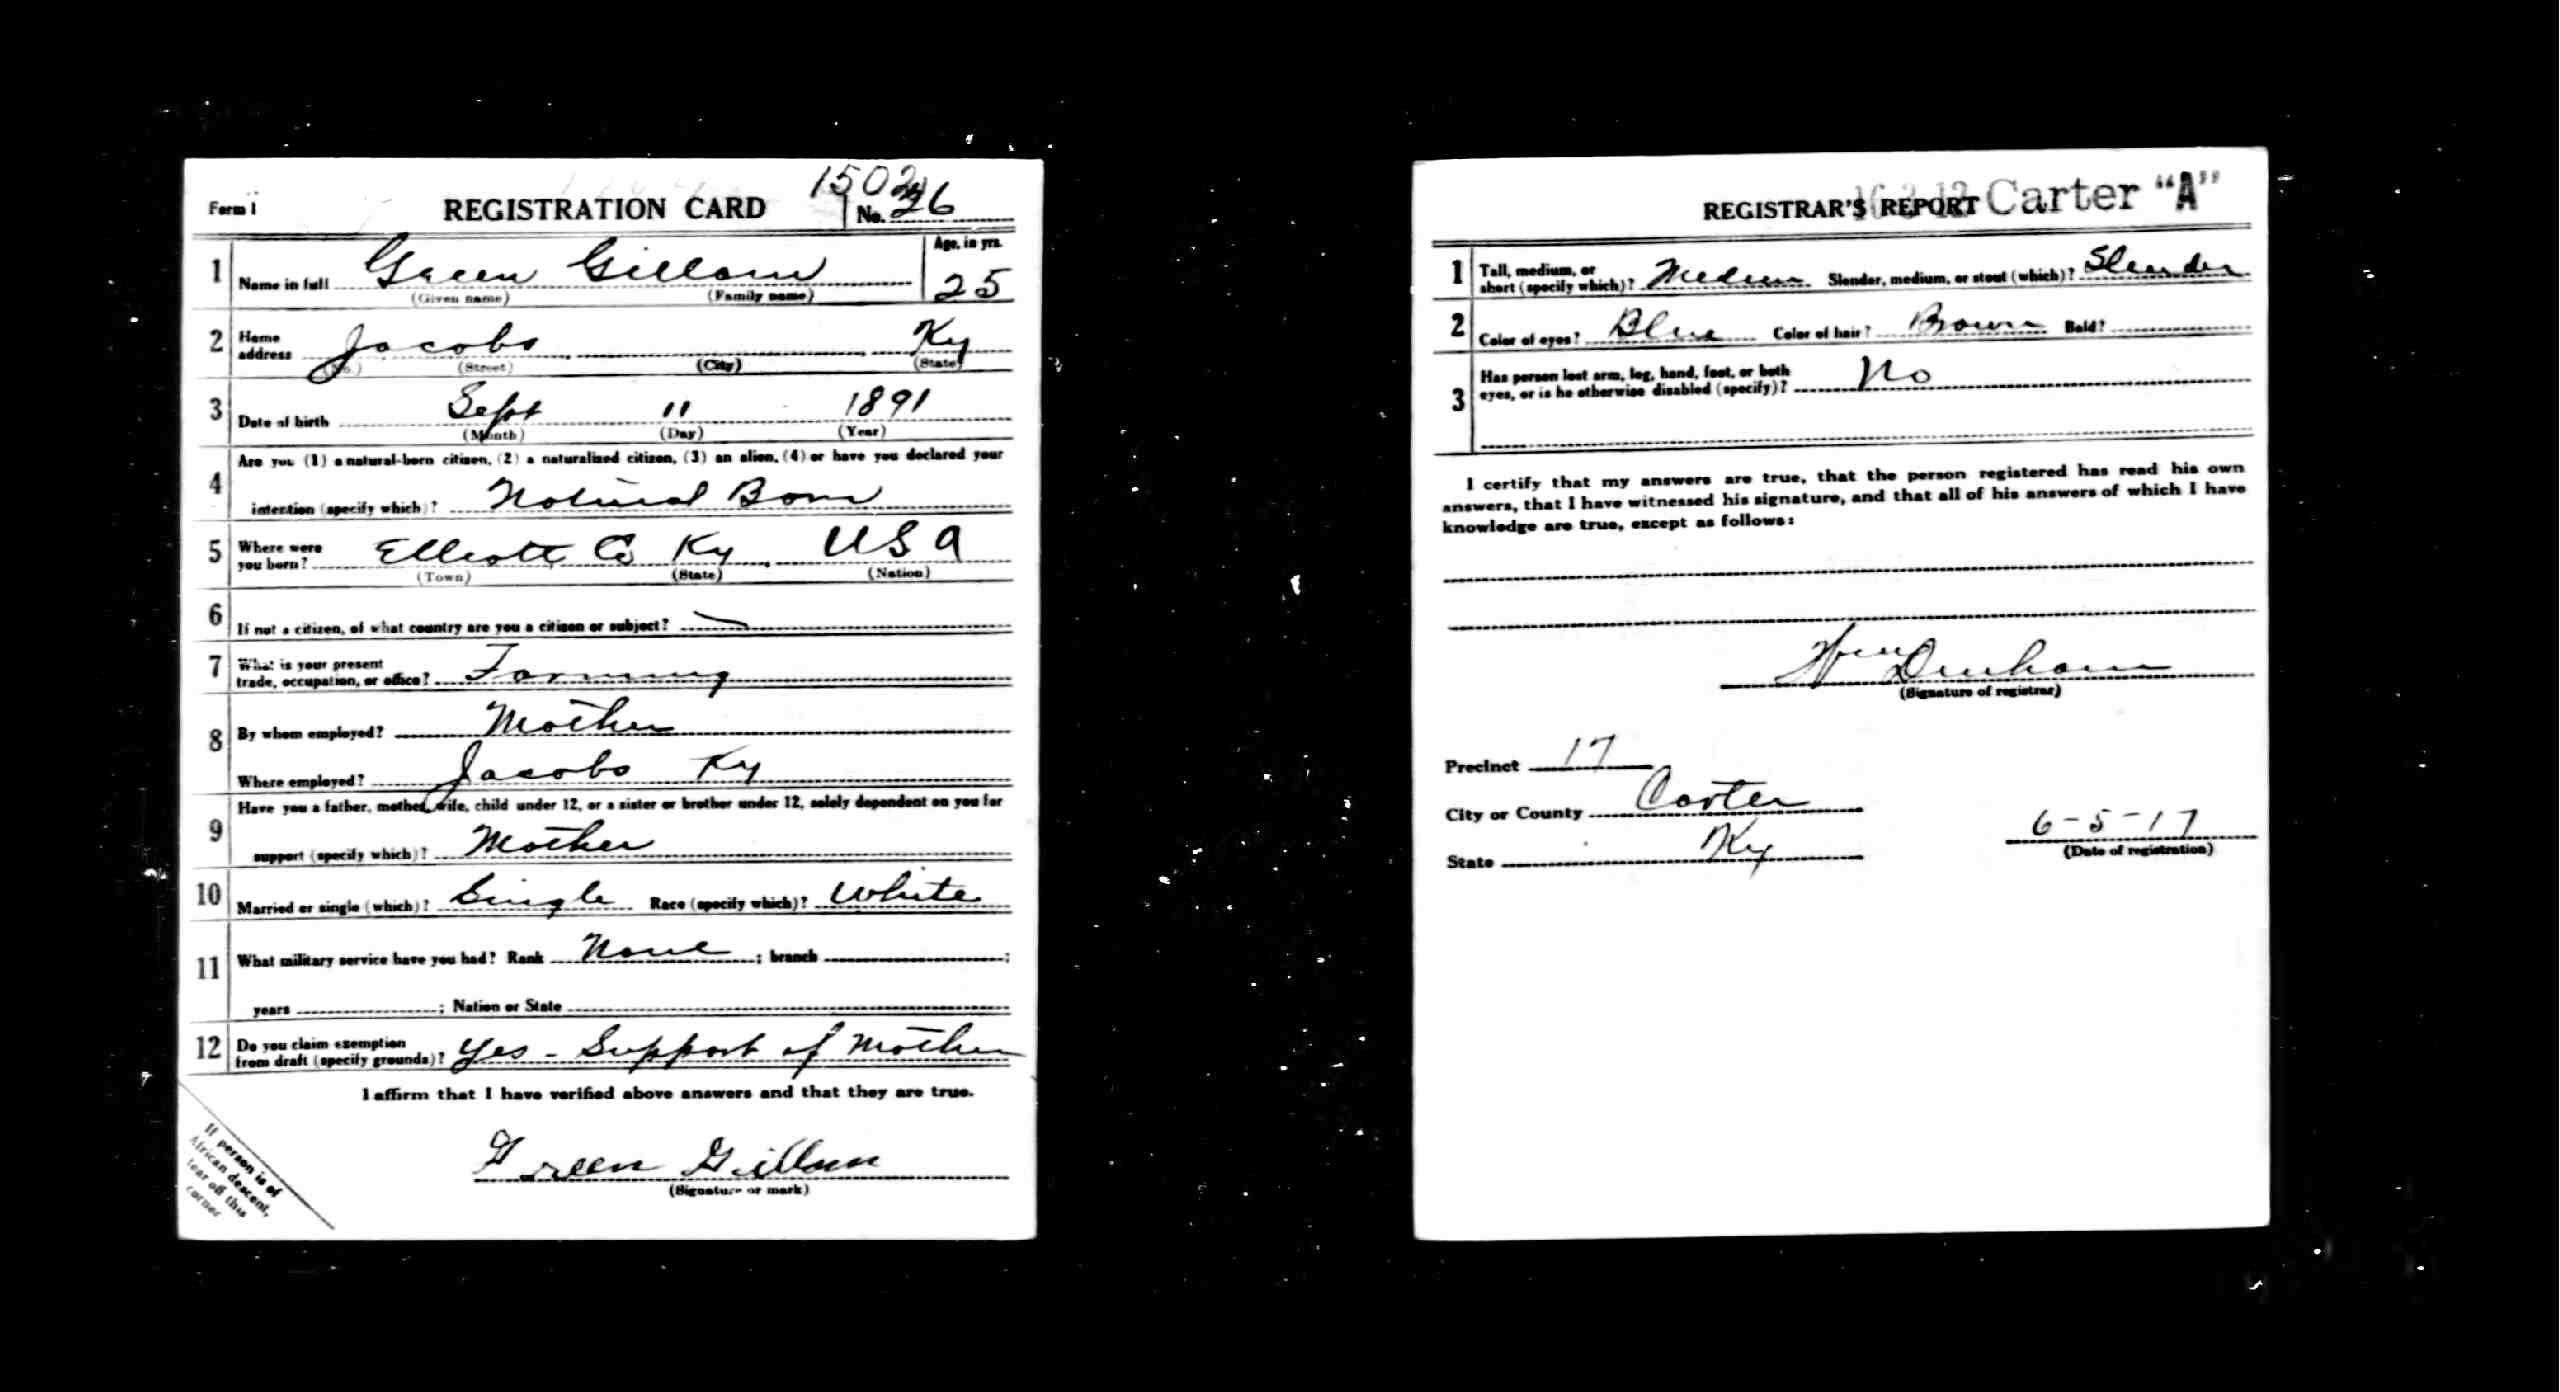 1502
Form 1 REGISTRATION CARD No. 26
1 Name in full Green Gillam Age, in yrs.
(Given name) (Family name) 25
2 Home address Jacobs Ky
(No.) (Street) (City) (State)
3 Date of birth Sept 11 1891
(Month) (Day) (Year)
4 Are you (1) a natural-born citizen, (2) a naturalized citizen, (3) an alien, (4) or have you declared your
intention (specify which)? Natural Born
5 Where were you born? Elliott Co Ky USA
(Town) (State) (Nation)
6 If not a citizen, of what country are you a citizen or subject? —
7 What is your present
trade, occupation, or office? Farming
8 By whom employed? Mother
Where employed? Jacobs Ky
9 Have you a father, mother, wife, child under 12, or a sister or brother under 12, solely dependent on you for
support (specify which)? Mother
10 Married or single (which)? Single Race (specify which)? White
11 What military service have you had? Rank None ; branch ;
years ; Nation or State
12 Do you claim exemption
from draft (specify grounds)? Yes - Support of Mother
I affirm that I have verified above answers and that they are true.
Green Gillam
(Signature or mark)
If person is of
African descent,
tear off this
corner
REGISTRAR'S REPORT Carter "A"
1 Tall, medium, or
short (specify which)? Medium Slender, medium, or stout (which)? Slender
2 Color of eyes? Blue Color of hair? Brown Bald?
3 Has person lost arm, leg, hand, foot, or both
eyes, or is he otherwise disabled (specify)? No
I certify that my answers are true, that the person registered has read his own
answers, that I have witnessed his signature, and that all of his answers of which I have
knowledge are true, except as follows:
Wm Dunham
(Signature of registrar)
Precinct 17
City or County Carter
State Ky
6-5-17
(Date of registration)